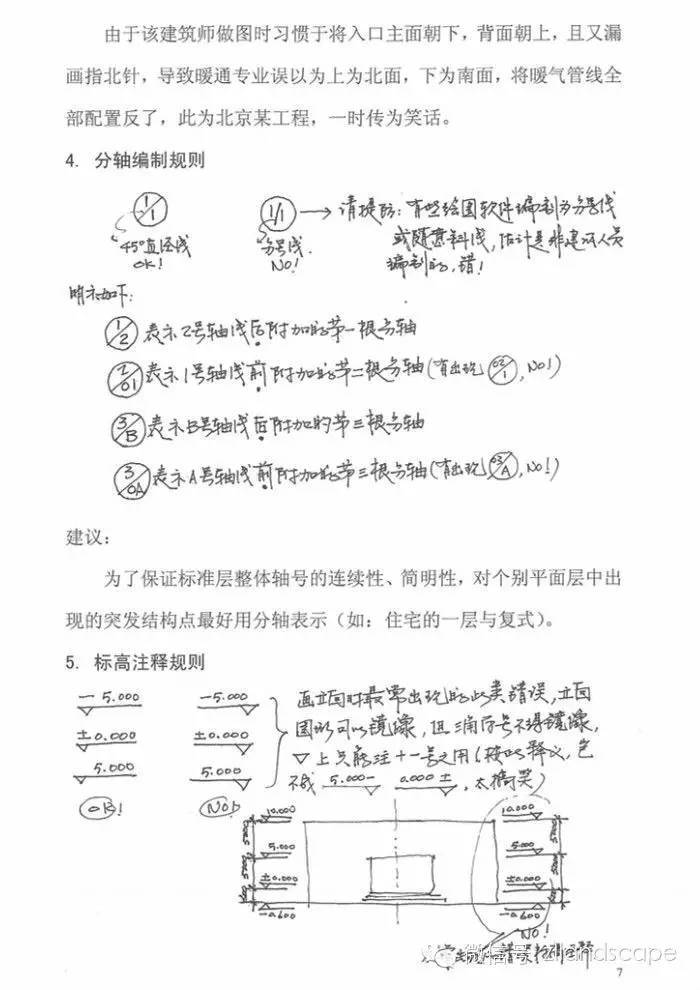 由于该建筑师做图时习惯于将入口主面朝下，背面朝上，且又漏
画指北针，导致暖通专业误以为上为北面，下为南面，将暖气管线全
部配置反了，此为北京某工程，一时传为笑话。
4. 分轴编制规则
1/1 1/1 请提防：有些绘图软件编制为分号线
45°直径线 分号线 或随意斜线，估计是非建筑人员
OK! NO! 编制的，错！
明示如下：
1/2 表示2号轴线后附加的第一根分轴
2/01 表示1号轴线前附加的第二根分轴（有出现 02/1，NO！）
3/B 表示B号轴线后附加的第三根分轴
3/0A 表示A号轴线前附加的第三根分轴（有出现 03/A，NO！）
建议：
为了保证标准层整体轴号的连续性、简明性，对个别平面层中出
现的突发结构点最好用分轴表示（如：住宅的一层与复式）。
5. 标高注释规则
－5.000 －5.000 画立面时最常出现的此类错误，立面
±0.000 ±0.000 图以可以镜像，但三角符号不得镜像，
5.000 5.000 ▽上只能注+－号之用（按此释义，岂
OK! NO! 不成 5.000－ 0.000±，太搞笑）
10.000 10.000
5.000 5.000
±0.000 ±0.000
-0.600 -0.600
NO!
微信号: zlandscape
7